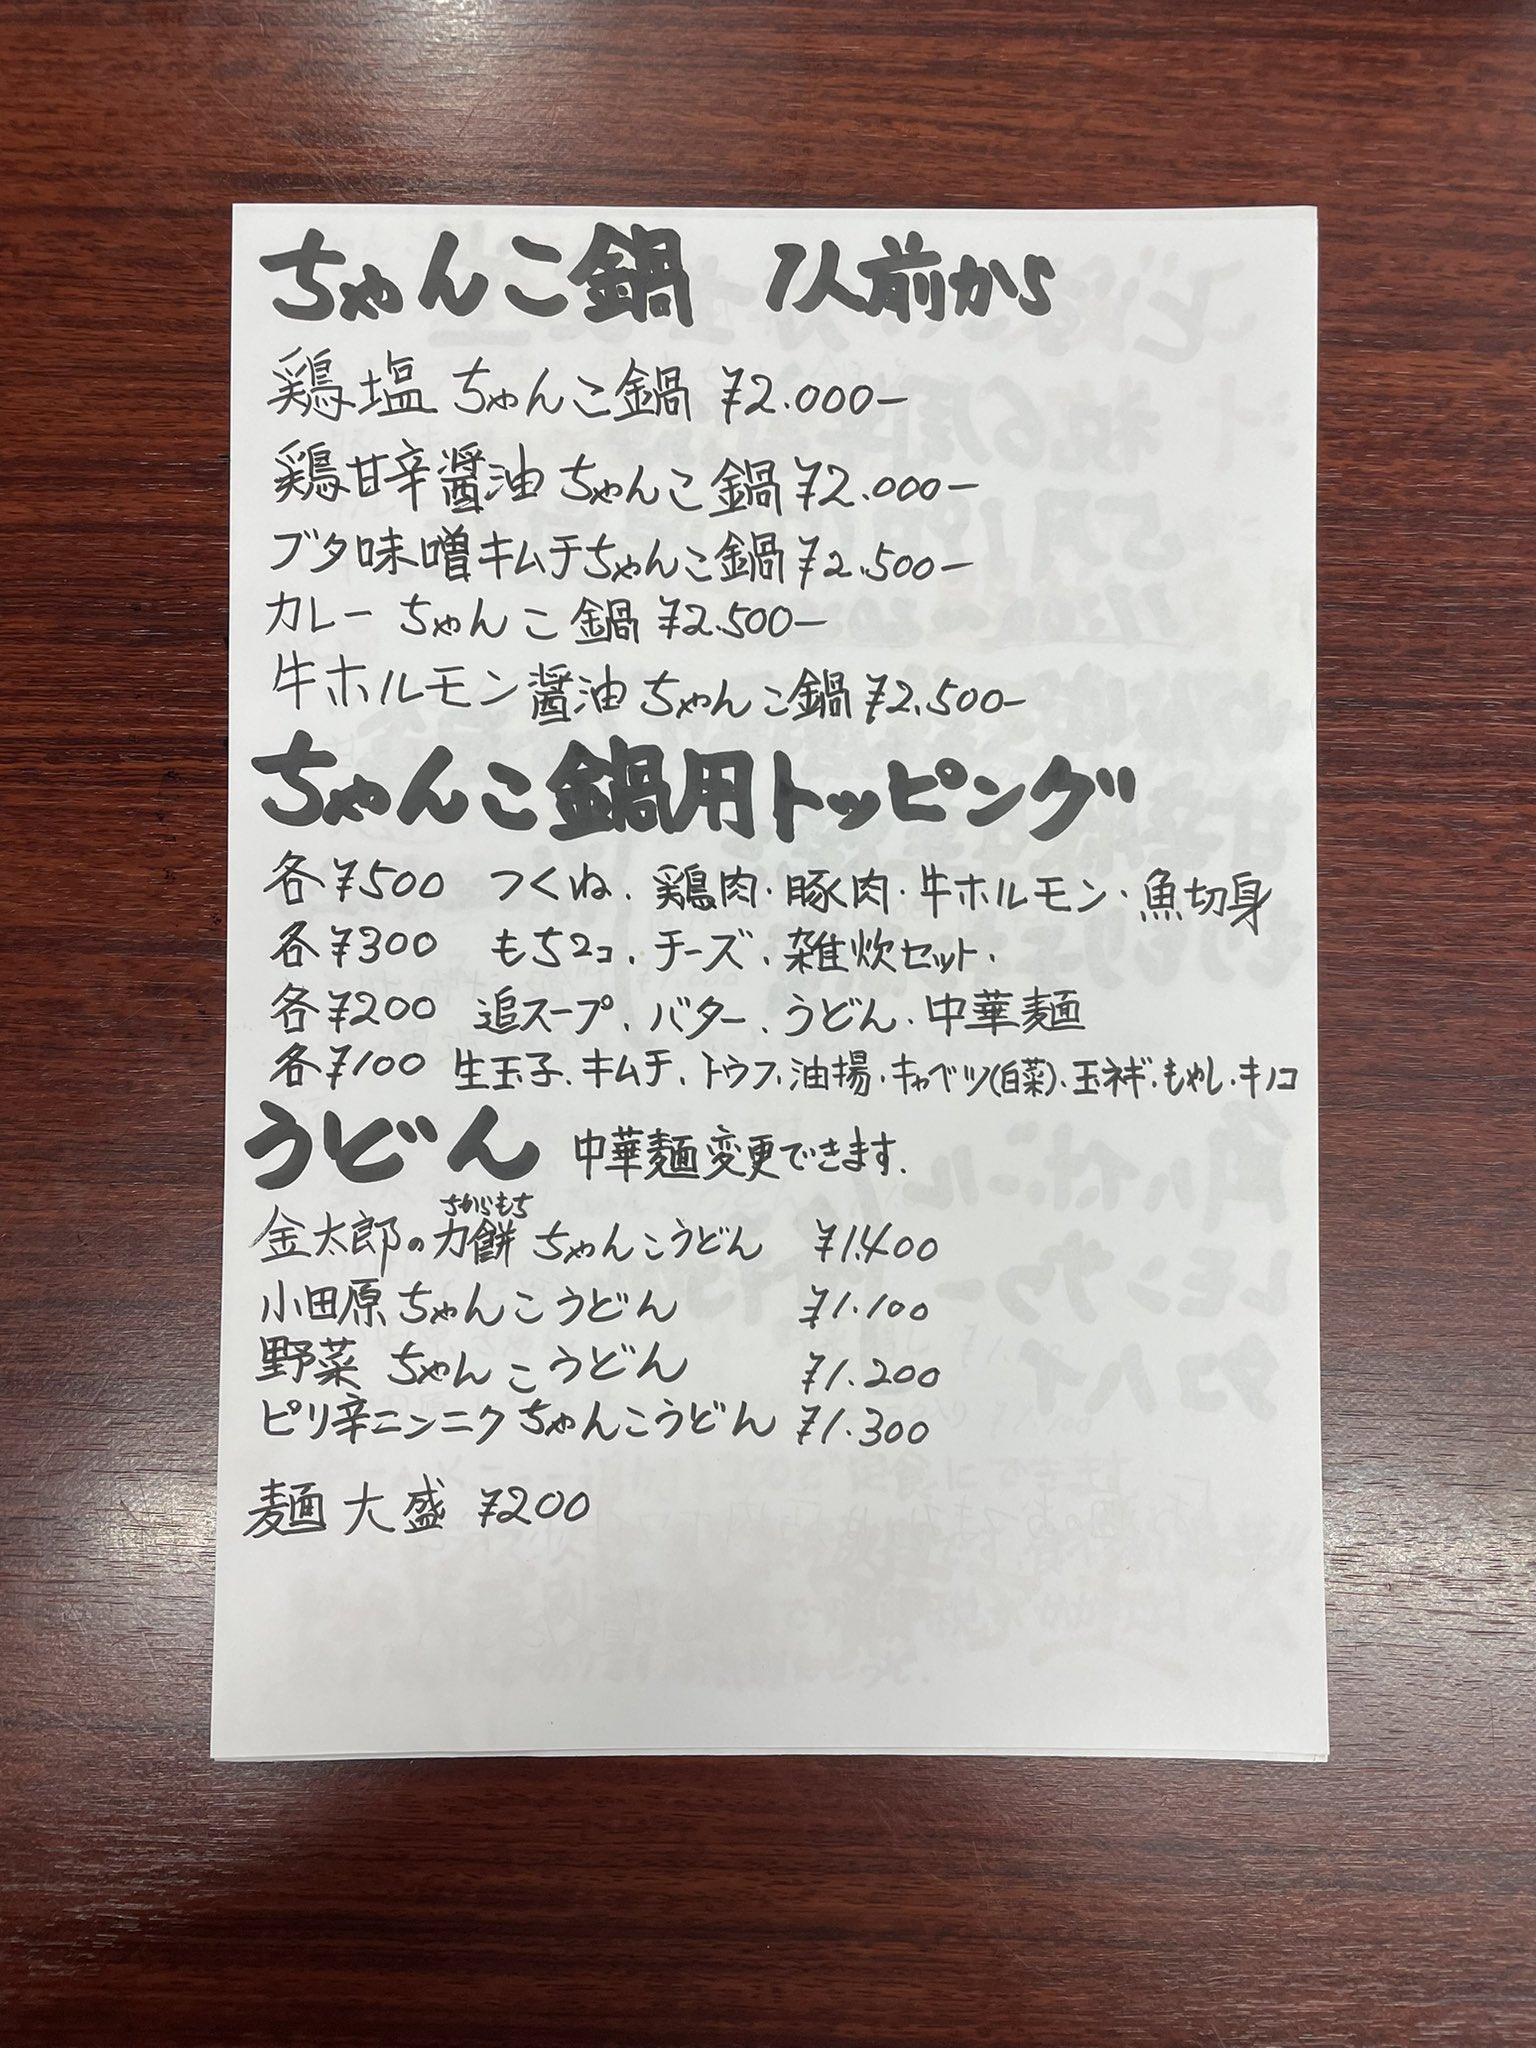 ちゃんこ鍋 1人前から
鶏塩ちゃんこ鍋 ¥2.000-
鶏甘辛醤油ちゃんこ鍋 ¥2.000-
ブタ味噌キムチちゃんこ鍋 ¥2.500-
カレーちゃんこ鍋 ¥2.500-
牛ホルモン醤油ちゃんこ鍋 ¥2.500-
ちゃんこ鍋用トッピング
各¥500 つくね、鶏肉・豚肉・牛ホルモン・魚切身
各¥300 もち2コ、チーズ、雑炊セット、
各¥200 追スープ、バター、うどん、中華麺
各¥100 生玉子、キムチ、トウフ、油揚、キャベツ(白菜)、玉ネギ、もやし、キノコ
うどん 中華麺変更できます.
ちからもち
金太郎の力餅ちゃんこうどん ¥1.400
小田原ちゃんこうどん ¥1.100
野菜ちゃんこうどん ¥1.200
ピリ辛ニンニクちゃんこうどん ¥1.300
麺大盛 ¥200